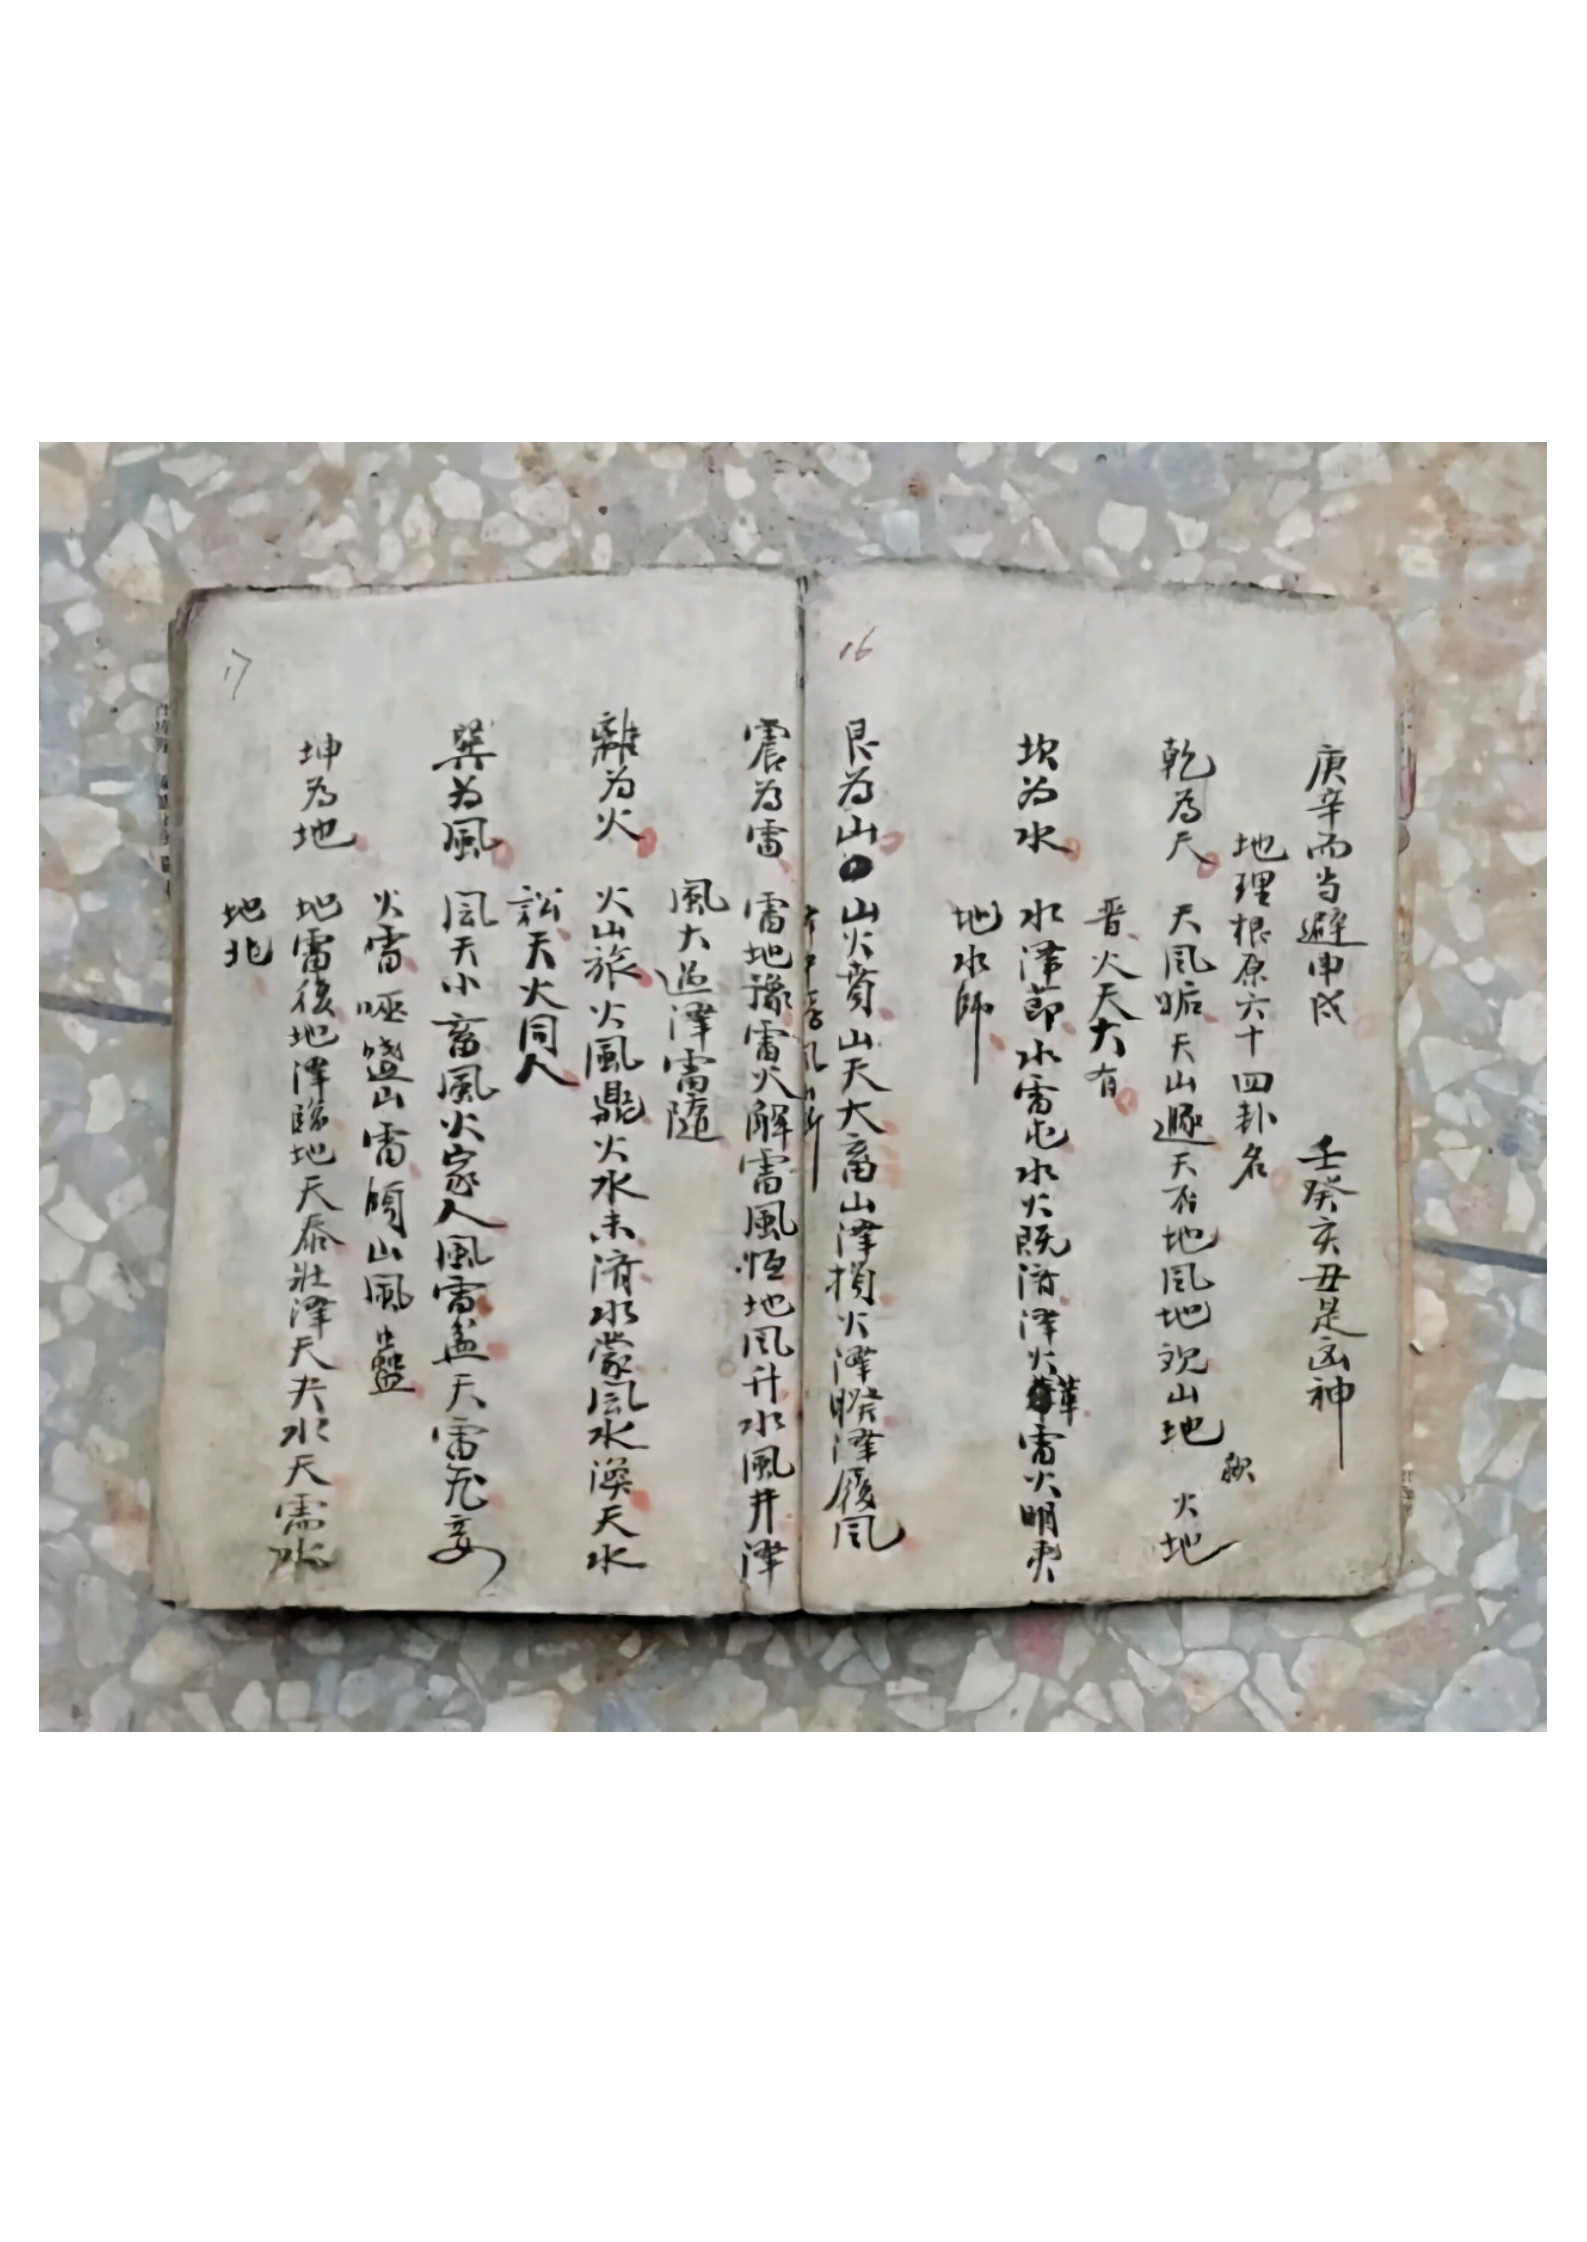 16
庚辛而当避申戌 壬癸亥丑是凶神
地理根原六十四卦名
乾為天 天風姤天山遯天否地風地观山地 火地
晋火天大有
坎為水 水澤節水雷屯水火既济澤火革雷火明夷
地水師
艮為山 山火賁山天大畜山澤損火澤睽澤履風
震為雷 雷地豫雷火解雷風恒地風升水風井澤
風大過澤雷隨
離為火 火山旅火風鼎火水未濟水蒙風水渙天水
訟天火同人
巽為風 風天小畜風火家人風雷益天雷无妄
火雷噬嗑山雷頤山風蠱
坤為地 地雷復地澤臨地天泰壯澤天夬水天需水
地
17